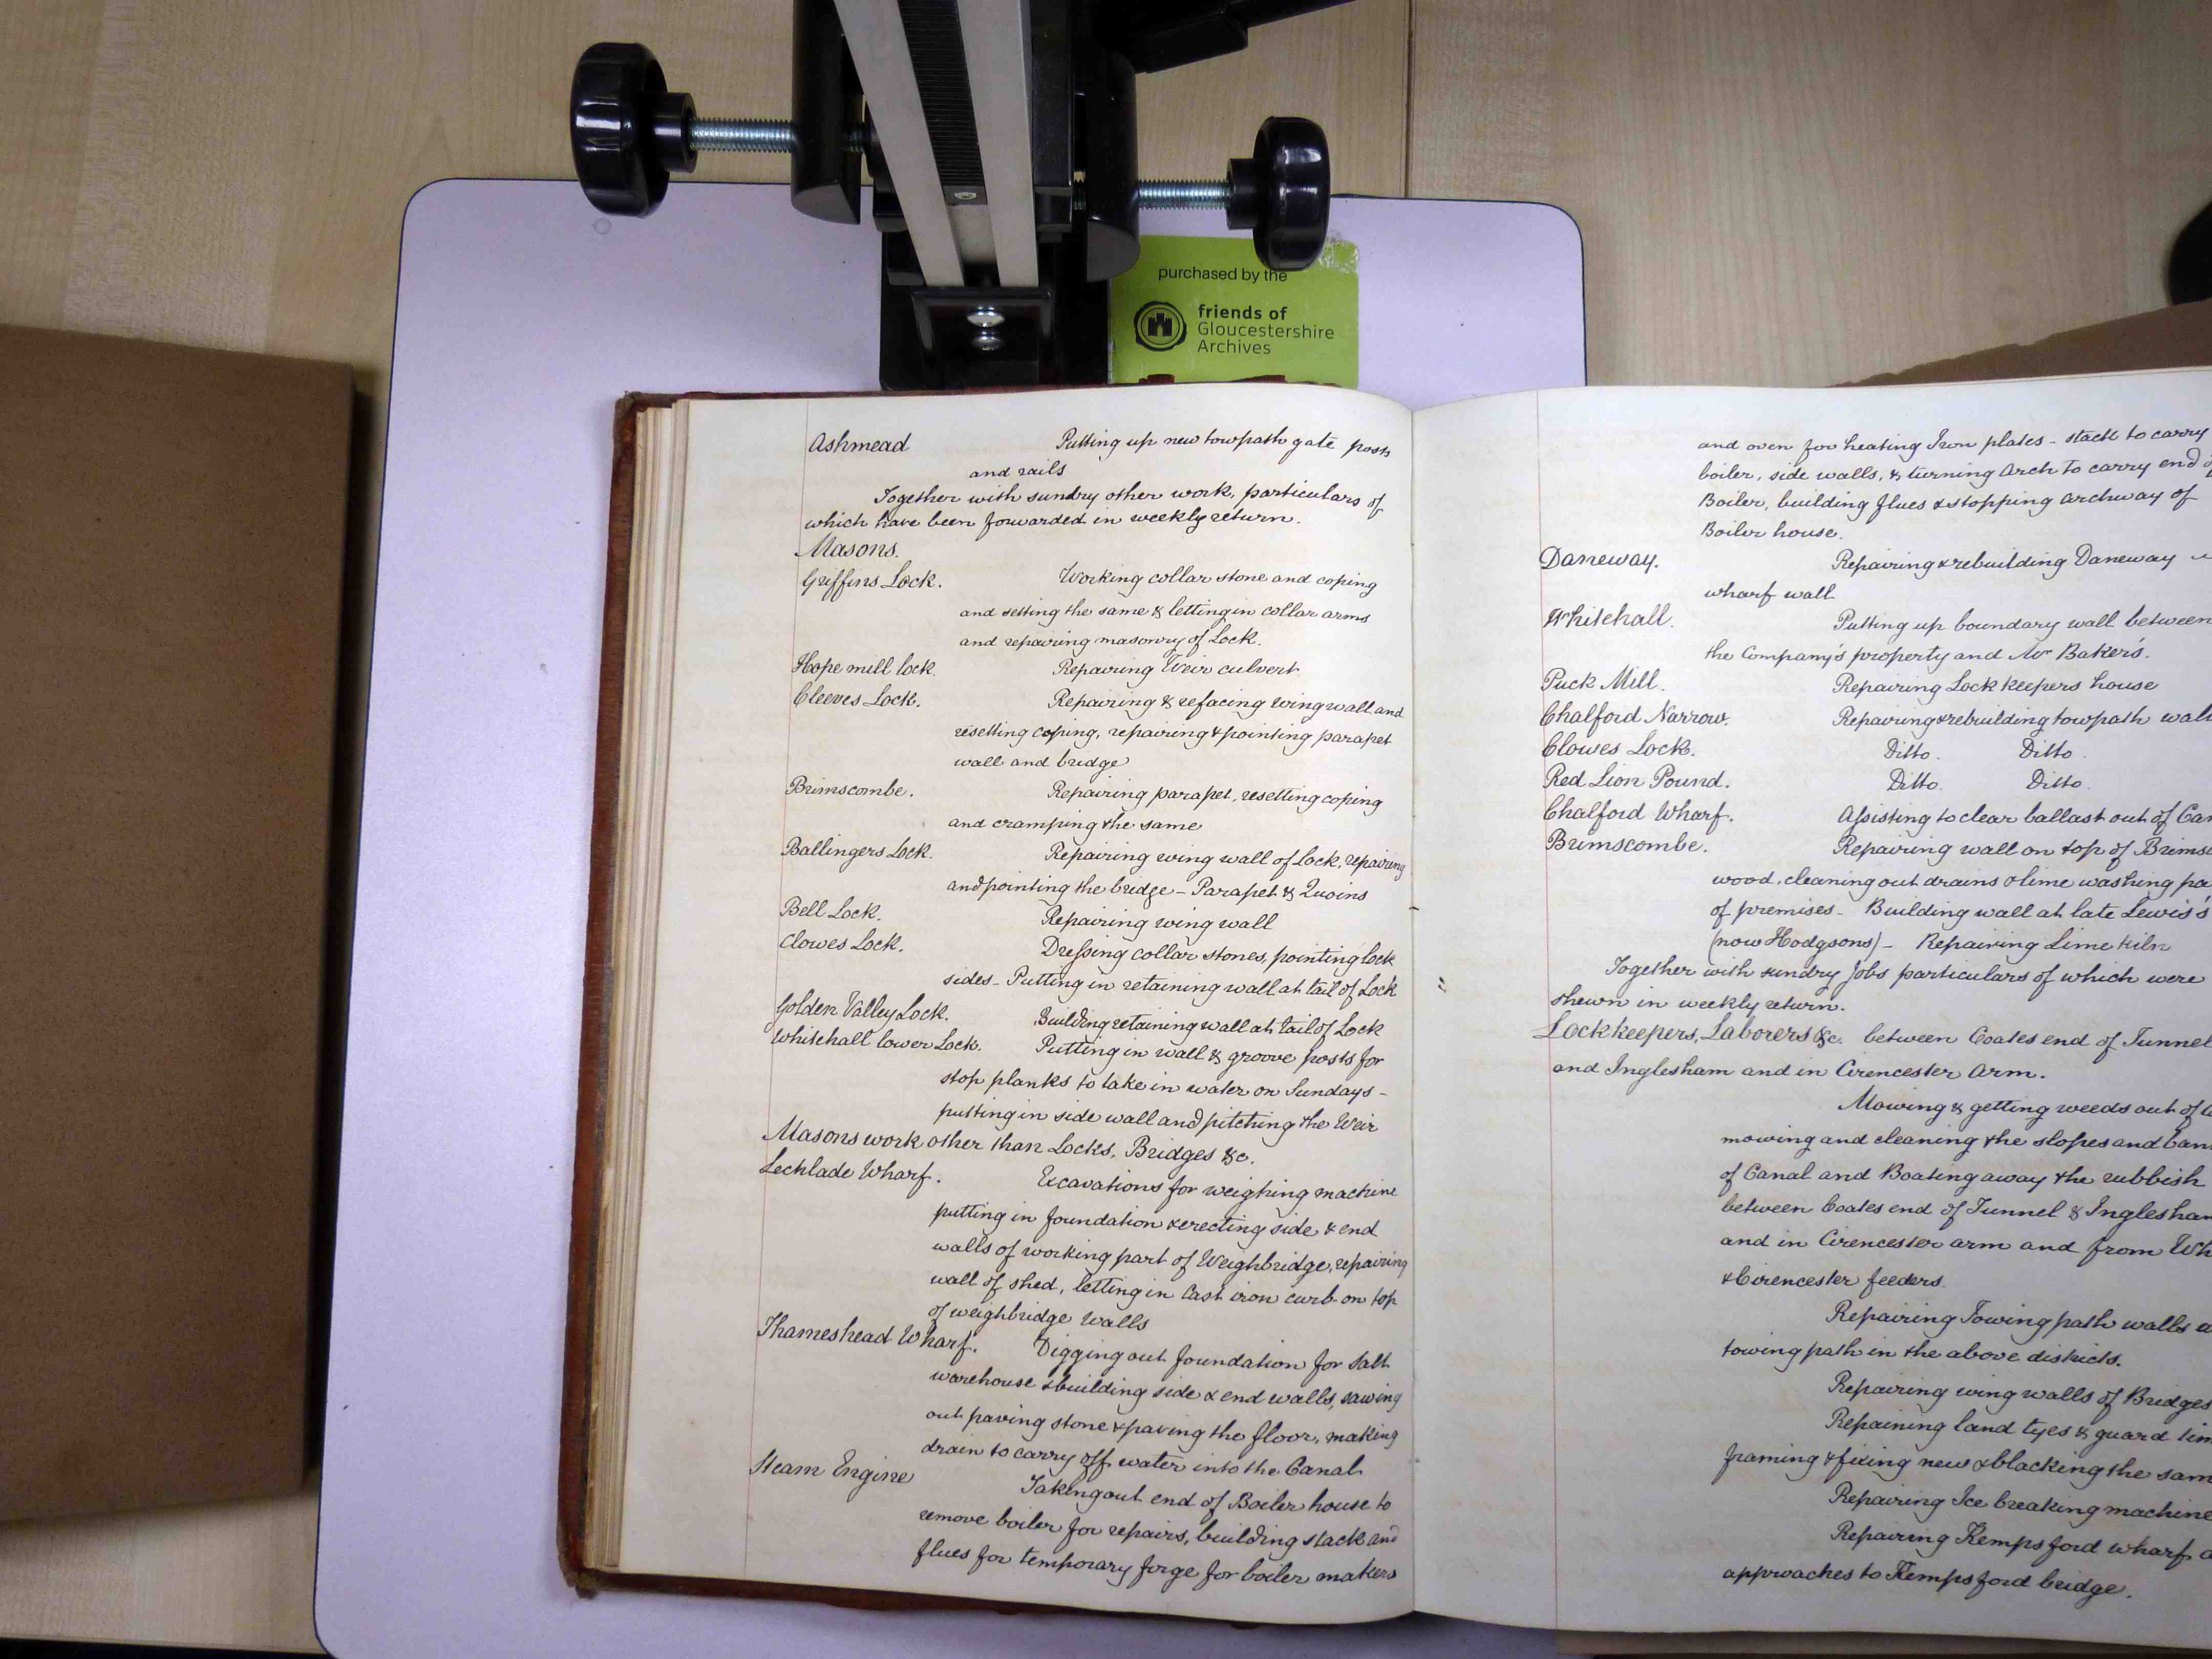 purchased by the
friends of
Gloucestershire
Archives
Ashmead Putting up new towpath gate posts
and rails
Together with sundry other work, particulars of
which have been forwarded in weekly return.
Masons.
Griffins Lock. Working collar stone and coping
and setting the same & letting in collar arms
and repairing masonry of Lock.
Hope mill lock. Repairing Weir culvert
Cleeves Lock. Repairing & refacing wing wall and
resetting coping, repairing & pointing parapet
wall and bridge
Brimscombe. Repairing parapet, resetting coping
and cramping the same
Ballingers Lock. Repairing wing wall of Lock, repairing
and pointing the bridge - Parapet & Quoins
Bell Lock. Repairing wing wall
Clowes Lock. Dressing collar stones, pointing lock
sides - Putting in retaining wall at tail of Lock
Golden Valley Lock. Building retaining wall at tail of Lock
Whitehall lower Lock. Putting in wall & groove posts for
stop planks to take in water on Sundays -
putting in side wall and pitching the Weir
Masons work other than Locks, Bridges &c.
Lechlade Wharf. Excavations for weighing machine
putting in foundation & erecting side & end
walls of working part of Weighbridge, repairing
wall of shed, letting in Cast iron curb on top
of weighbridge walls
Thameshead Wharf. Digging out foundation for Salt
warehouse & building side & end walls, sawing
out paving stone & paving the floor, making
drain to carry off water into the Canal
Steam Engine Taking out end of Boiler house to
remove boiler for repairs, building stack and
flues for temporary forge for boiler makers
and oven for heating Iron plates - stack to carry
boiler, side walls, & turning Arch to carry end of
Boiler, building flues & stopping archway of
Boiler house.
Daneway. Repairing & rebuilding Daneway
wharf wall
Whitehall. Putting up boundary wall between
the Company's property and Mr Baker's.
Puck Mill. Repairing Lock keepers house
Chalford Narrow. Repairing & rebuilding towpath wall
Clowes Lock. Ditto. Ditto.
Red Lion Pound. Ditto. Ditto.
Chalford Wharf. Assisting to clear ballast out of Can
Brimscombe. Repairing wall on top of Brimsc
wood, cleaning out drains & lime washing pa
of premises - Building wall at late Lewis's
(now Hodgsons) - Repairing Lime Kiln
Together with sundry Jobs particulars of which were
shewn in weekly return.
Lockkeepers, Laborers &c. between Coates end of Tunnel
and Inglesham and in Cirencester Arm.
Mowing & getting weeds out of
mowing and cleaning the slopes and ban
of Canal and Boating away the rubbish
between Coates end of Tunnel & Inglesham
and in Cirencester arm and from Wh
& Cirencester feeders.
Repairing Towing path walls a
towing path in the above districts.
Repairing wing walls of Bridges
Repairing land tyes & guard tim
framing & fixing new & blacking the sam
Repairing Ice breaking machine
Repairing Kempsford wharf a
approaches to Kempsford bridge.